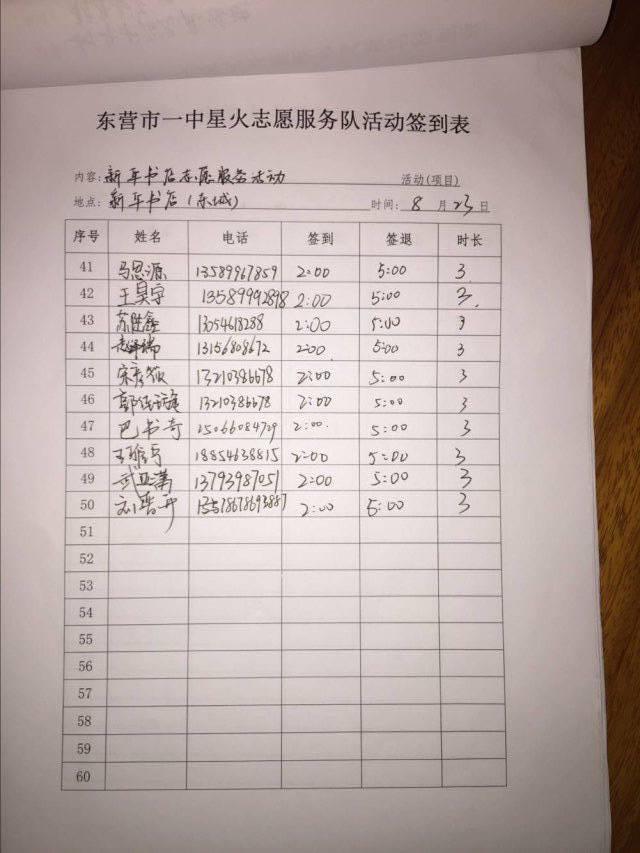 东营市一中星火志愿服务队活动签到表
内容: 新华书店志愿服务活动 活动(项目)
地点: 新华书店(东城) 时间: 8 月 23 日
序号 姓名 电话 签到 签退 时长
41 马思源 13589967859 2:00 5:00 3
42 王昊宇 13589992898 2:00 5:00 3
43 苏胜鑫 13054618288 2:00 5:00 3
44 13156808672 2:00 5:00 3
45 宋彦筱 13210386678 2:00 5:00 3
46 13210386678 2:00 5:00 3
47 巴书奇 15066084729 2:00 5:00 3
48 18854638815 2:00 5:00 3
49 武亚潇 13793987051 2:00 5:00 3
50 刘晋开 2:00 5:00 3
51
52
53
54
55
56
57
58
59
60